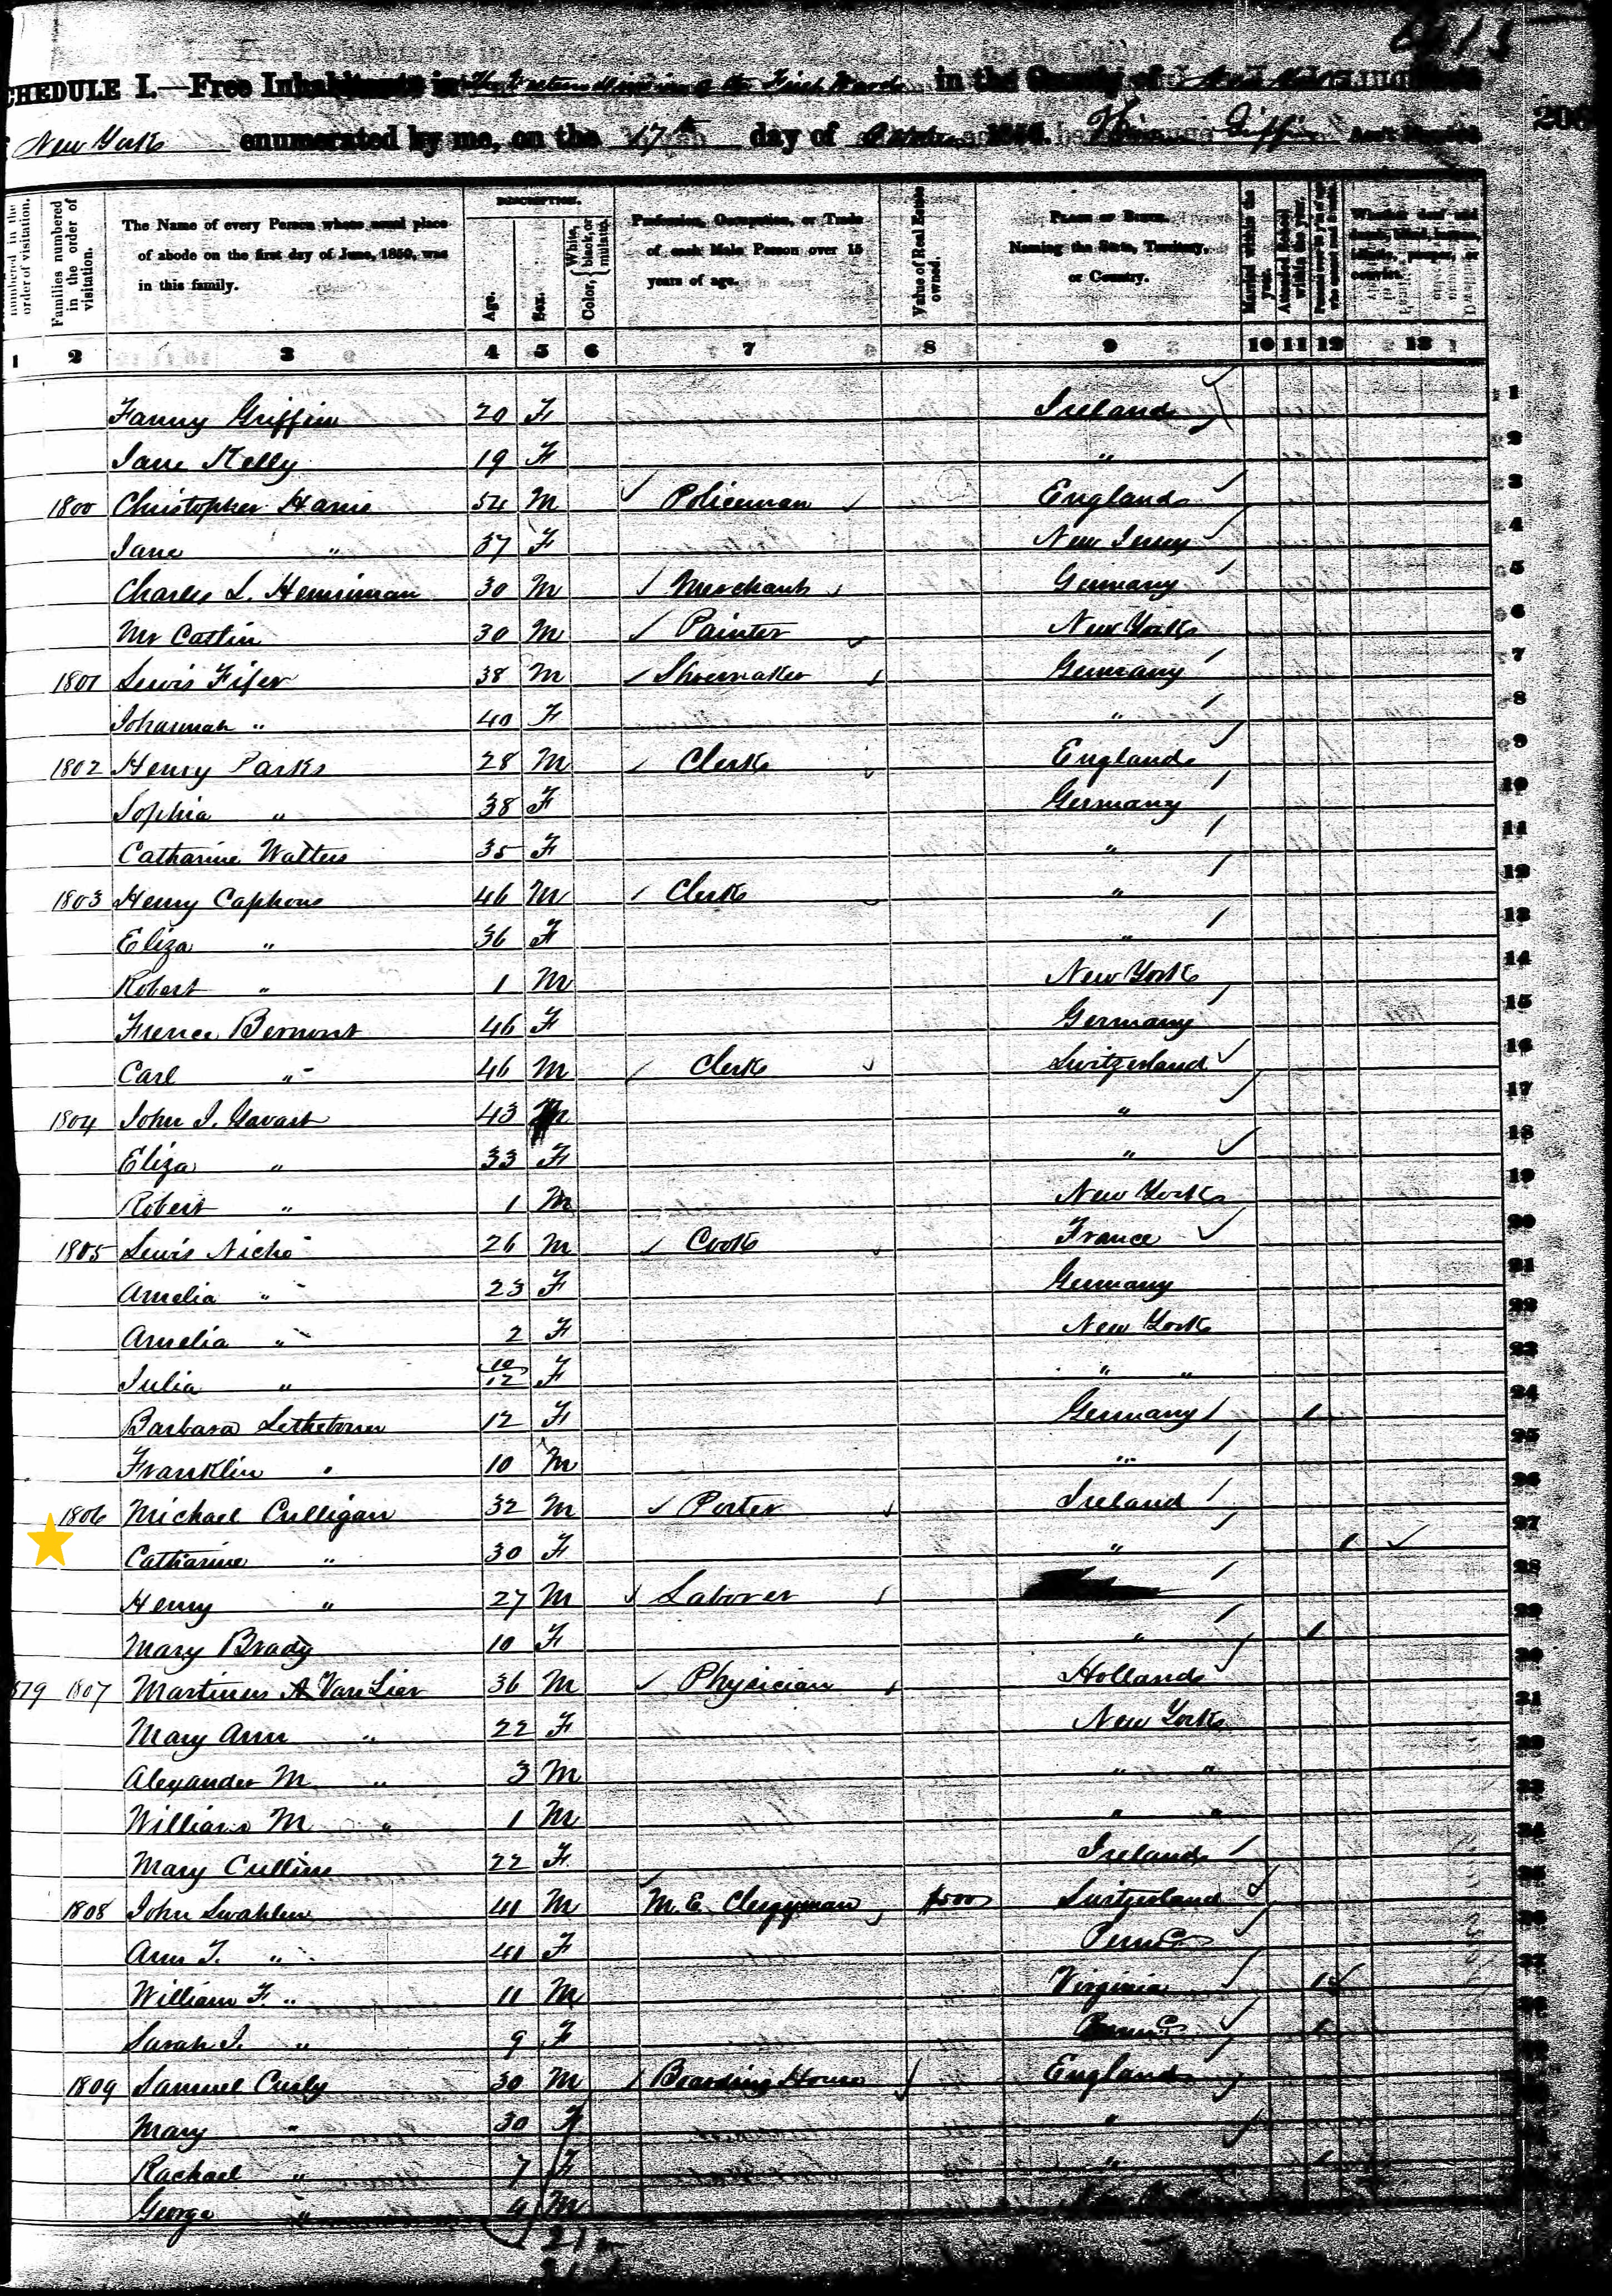 SCHEDULE I.—Free Inhabitants in the Western Division of the First Ward in the County of New York
New York enumerated by me, on the 17th day of 1850.
numbered in the order of visitation.
Families numbered in the order of visitation.
The Name of every Person whose usual place of abode on the first day of June, 1850, was in this family.
DESCRIPTION.
Age.
Sex.
Color, White, black, or mulatto.
Profession, Occupation, or Trade of each Male Person over 15 years of age.
Value of Real Estate owned.
PLACE OF BIRTH. Naming the State, Territory, or Country.
Married within the year.
Attended School within the year.
1 2 3 4 5 6 7 8 9 10 11 12 13
Fanny Griffin 20 F Ireland 1
Jane Kelly 19 F " 2
1800 Christopher Harris 54 M Policeman England 3
Jane " 37 F New Jersey 4
Charles L. Henriman 30 M Merchant Germany 5
Mr Catlin 30 M Painter New York 6
1801 Lewis Fifer 38 M Shoemaker Germany 7
Johannah " 40 F " 8
1802 Henry Parks 28 M Clerk England 9
Sophia " 38 F Germany 10
Catharine Walters 35 F " 11
1803 Henry Caphons 46 M Clerk " 12
Eliza " 36 F " 13
Robert " 1 M New York 14
Bernont 46 F Germany 15
Carl " 46 M Clerk Switzerland 16
1804 John J. Gavast 43 M " 17
Eliza " 33 F " 18
Robert " 1 M New York 19
1805 Lewis Nicho 26 M Cook France 20
Amelia " 23 F Germany 21
Amelia " 2 F New York 22
Julia " 10/12 F " " 23
Barbara 12 F Germany 1 24
Franklin " 10 M " 25
1806 Michael Culligan 32 M Porter Ireland 26
Catharine " 30 F " 1 27
Henry " 27 M Laborer 28
Mary Brady 10 F " 1 29
879 1807 Martinus A Van Lier 36 M Physician Holland 30
Mary Ann " 22 F New York 31
Alexander M " 3 M " " 32
William M " 1 M " " 33
Mary Cullins 22 F Ireland 34
1808 John Swahlen 41 M M. E. Clergyman Switzerland 35
Ann T. " 41 F Penna 36
William F. " 11 M Virginia 1 37
Sarah J. " 9 F Penna 1 38
1809 Samuel Curly 30 M Boarding House England 39
Mary " 30 F "
Rachael " 7 F " 1
George " 4 M
21 m